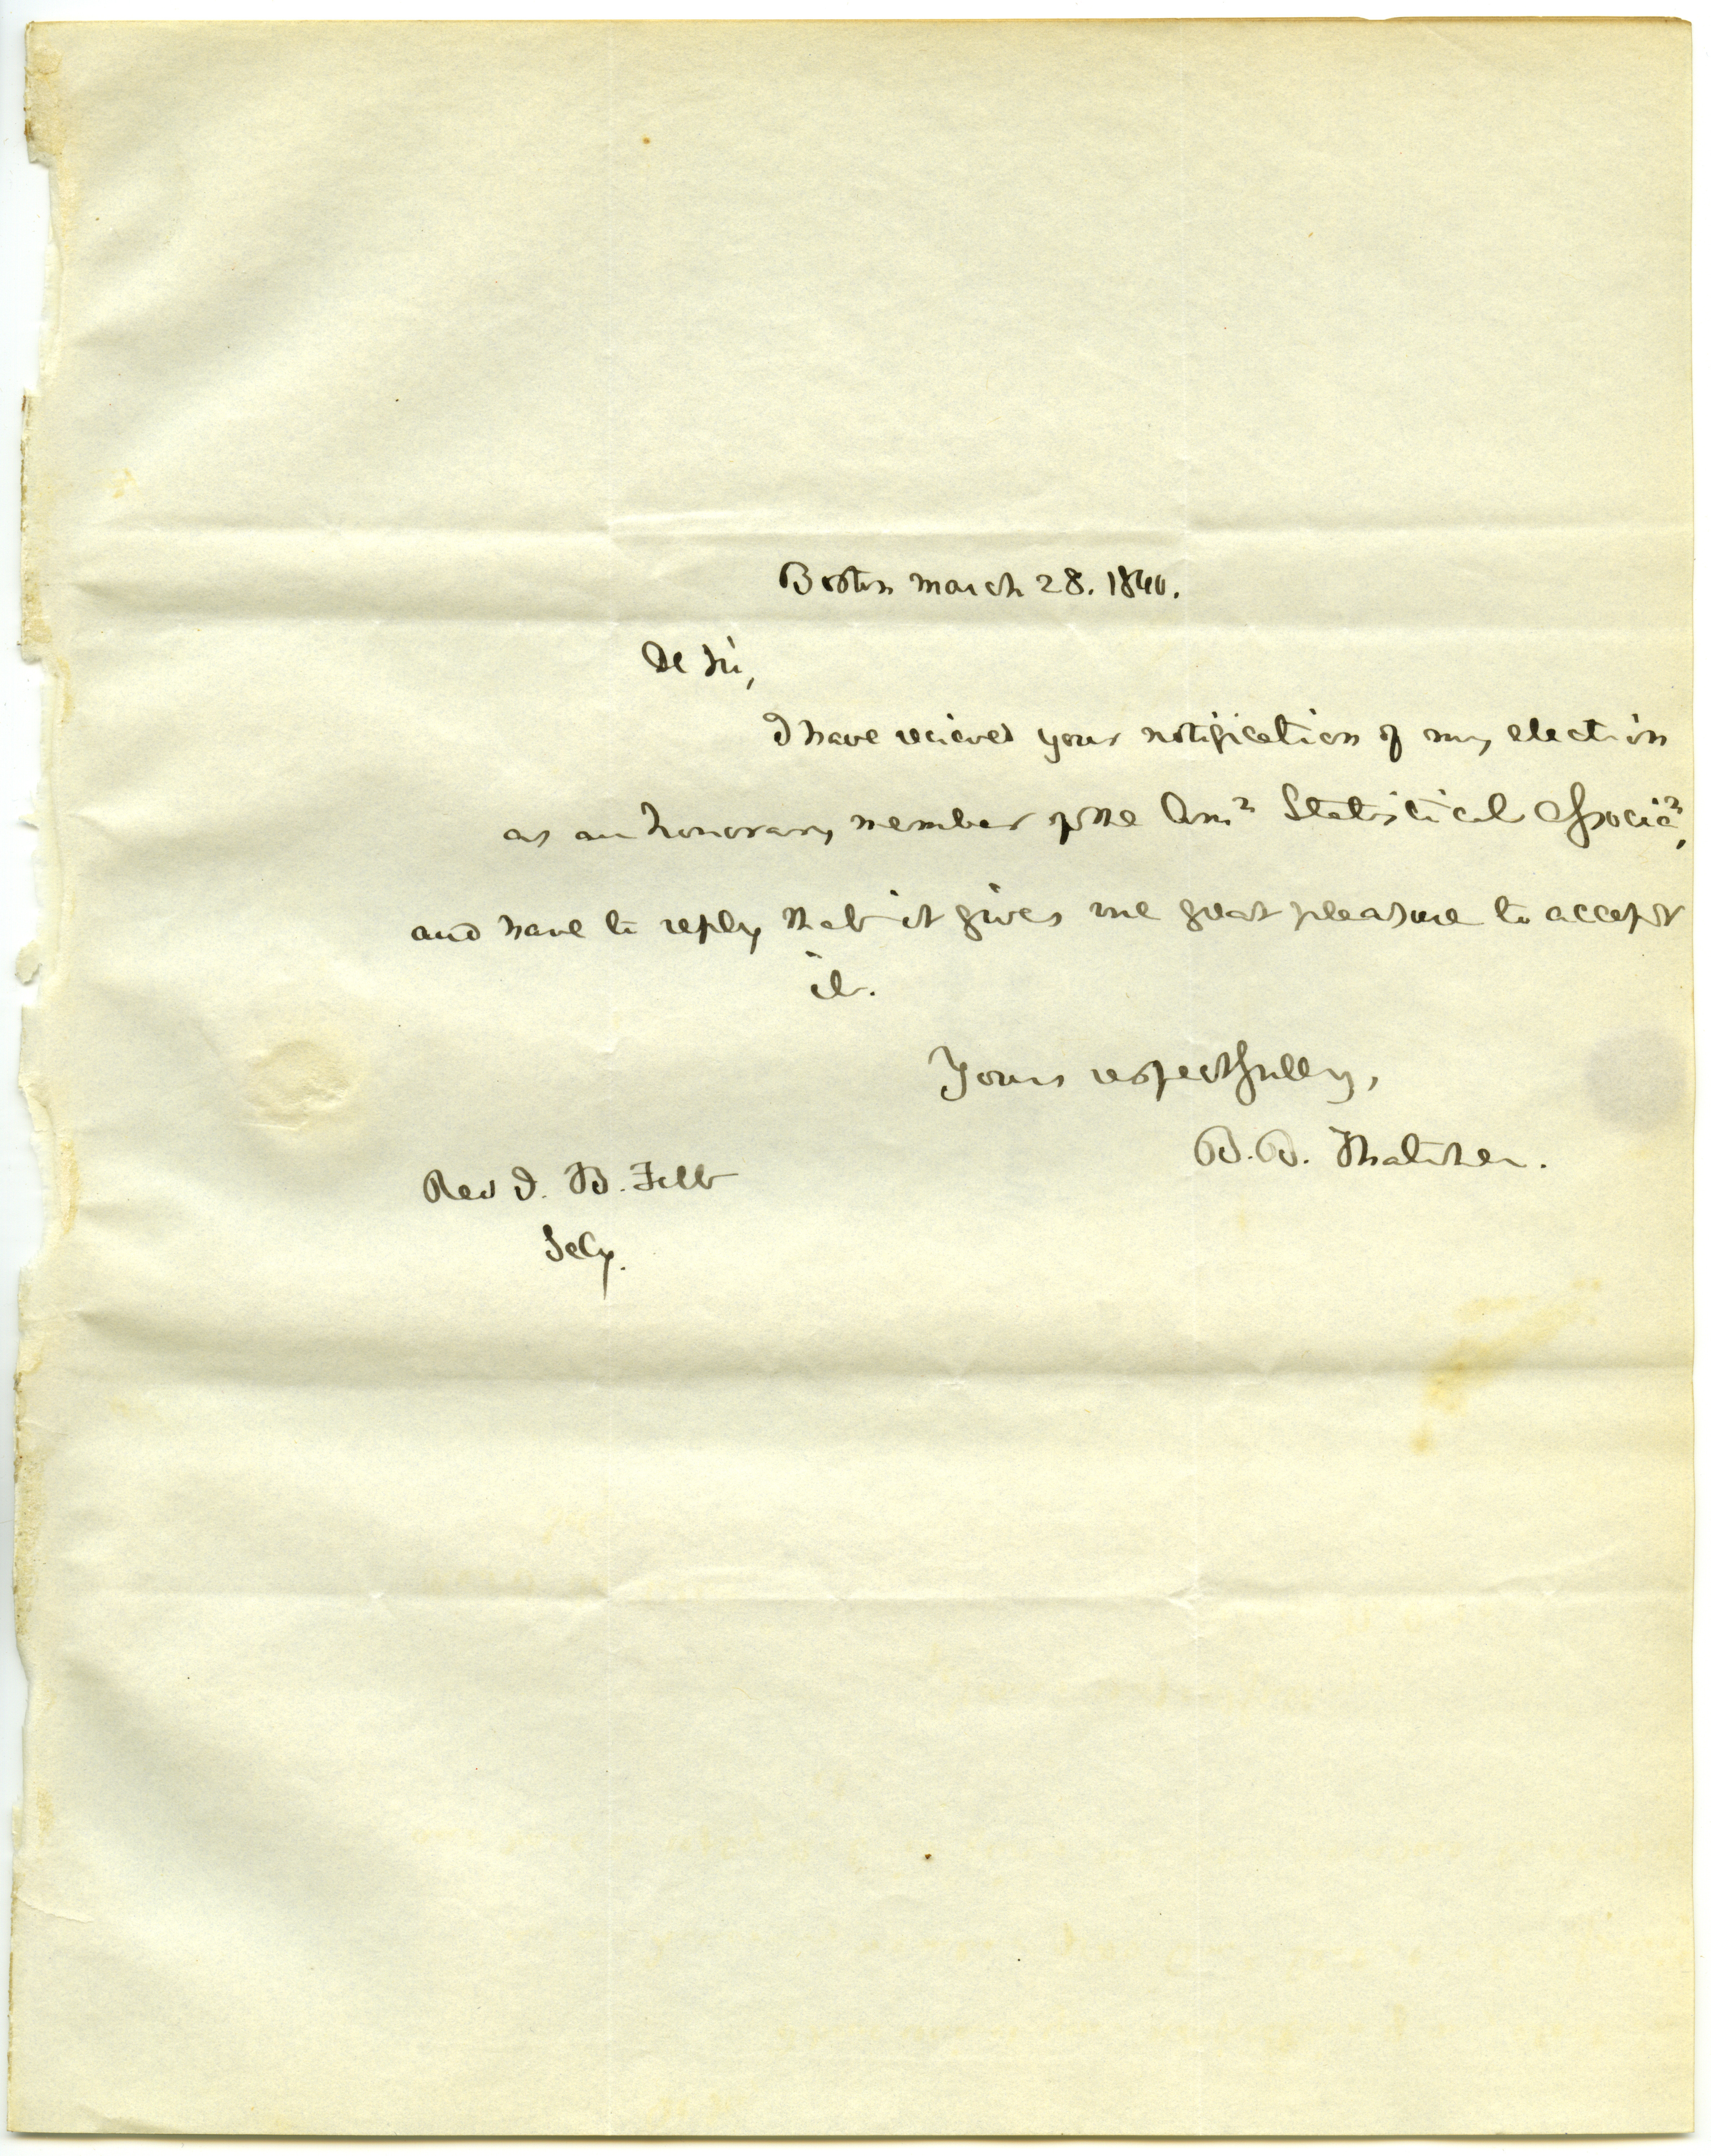 Boston March 28. 1840.
De Sir,
I have recieved your notification of my election
as an honorary member of the Amn Statistical Associan,
and have to reply that it gives me great pleasure to accept
it.
Yours respectfully,
B. B. Thatcher.
Rev J. B. Felt
Secy.